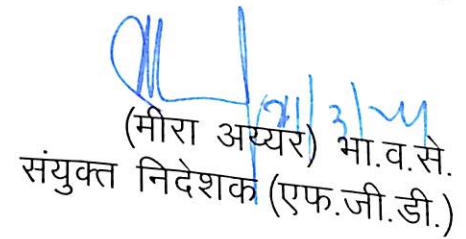 (मीरा अय्यर) भा.व.से.
संयुक्त निदेशक (एफ.जी.डी.)